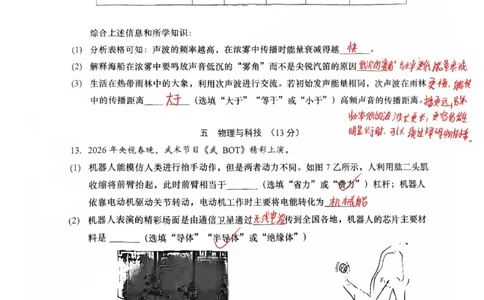 综合上述信息和所学知识:
(1) 分析表格可知:声波的频率越高,在浓雾中传播时能量衰减得越 快 。
(2) 解释海船在浓雾中要鸣放声音低沉的“雾角”而不是尖锐汽笛的原因
(3) 生活在热带雨林中的大象,利用次声波进行交流。若初始发声能量相同,次声波在雨林
中的传播距离 大于 (选填“大于”“等于”或“小于”)高频声音的传播距离。
五 物理与科技 (13 分)
13. 2026 年央视春晚,武术节目《武 BOT》精彩上演。
(1) 机器人能模仿人类进行抬手动作,但是两者动力不同。如图 7 乙所示,人利用肱二头肌
收缩将前臂抬起,此时前臂相当于______(选填“省力”或“费力”)杠杆;机器人
依靠电动机驱动关节转动,电动机工作时主要将电能转化为 机械能
(2) 机器人表演的精彩场面是由通信卫星通过 传到全国各地,机器人的芯片主要材
料是______(选填“导体”“半导体”或“绝缘体”)